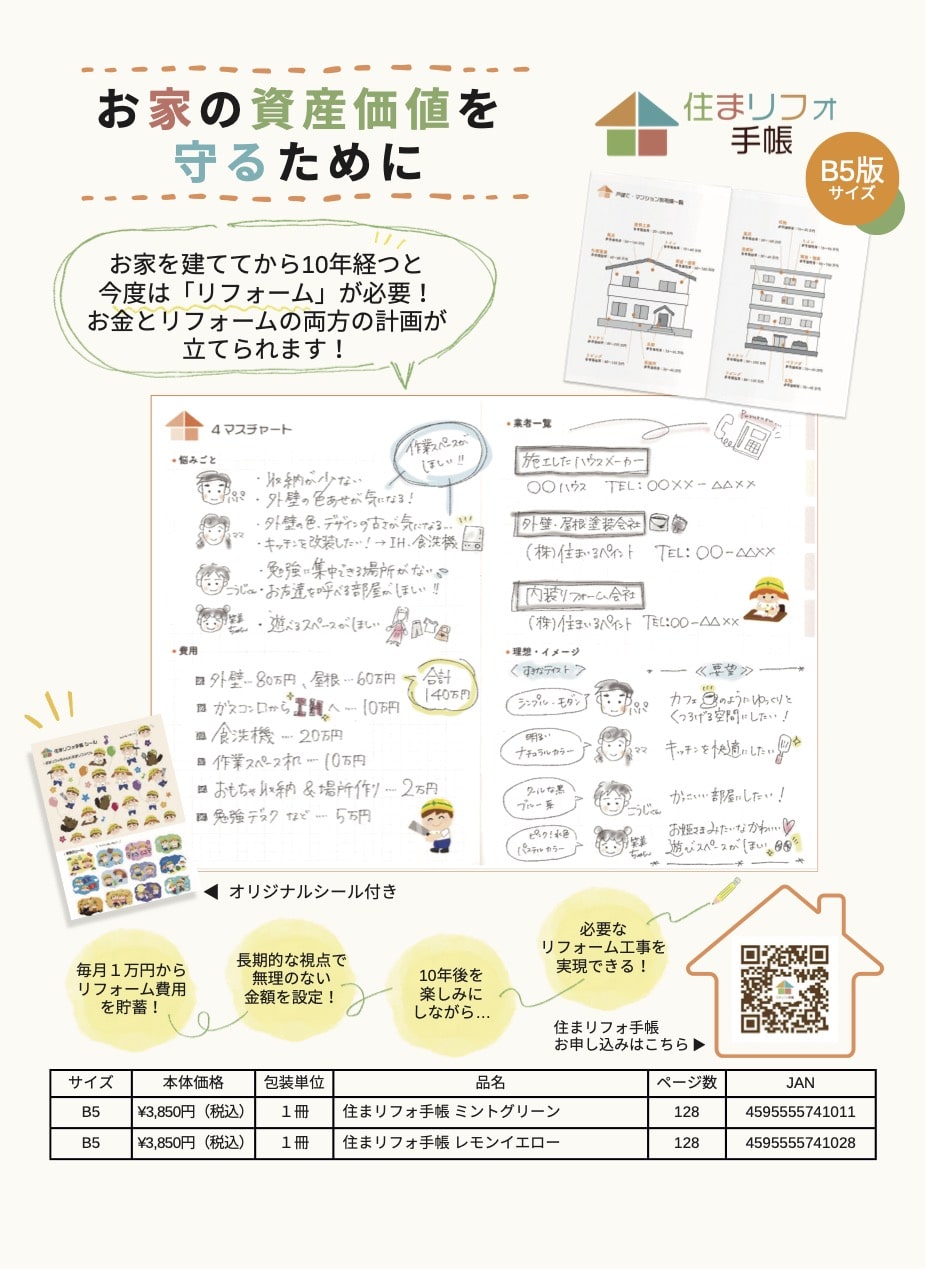 お家の資産価値を
守るために
住まリフォ
手帳
B5版
サイズ
戸建て・マンション修理費一覧
お家を建ててから10年経つと
今度は「リフォーム」が必要！
お金とリフォームの両方の計画が
立てられます！
4マスチャート
・悩みごと
作業スペースが
ほしい!!
・収納が少ない
・外壁の色あせが気になる!
パパ
・外壁の色、デザインの古さが気になる…
・キッチンを改装したい!→IH、食洗機
ママ
・勉強に集中できる場所がない
・お友達を呼べる部屋がほしい!!
こうじくん
・遊べるスペースがほしい
笑美ちゃん
・費用
外壁…80万円、屋根…60万円
合計
140万円
ガスコンロからIHへ…10万円
食洗機…20万円
作業スペース机…10万円
おもちゃ収納&場所作り…2万円
勉強デスクなど…5万円
・業者一覧
施工したハウスメーカー
〇〇ハウス TEL:〇〇××-△△××
外壁・屋根塗装会社
(株)住まいるペイント TEL:〇〇-△△××
内装リフォーム会社
(株)住まいるペイント TEL:〇〇-△△××
・理想・イメージ
〈すきなテイスト〉
《要望》
シンプル・モダン
パパ
カフェのようにゆっくりと
くつろげる空間にしたい!
明るい
ナチュラルカラー
ママ
キッチンを快適にしたい!
クールな黒
ブルー系
こうじくん
かっこいい部屋にしたい!
ピンク!水色
パステルカラー
笑美ちゃん
お姫さまみたいなかわいい
遊びスペースがほしい
住まリフォ手帳シール
◀ オリジナルシール付き
毎月１万円から
リフォーム費用
を貯蓄！
長期的な視点で
無理のない
金額を設定！
10年後を
楽しみに
しながら…
必要な
リフォーム工事を
実現できる！
住まリフォ手帳
お申し込みはこちら▶
サイズ 本体価格 包装単位 品名 ページ数 JAN
B5 ¥3,850円（税込） １冊 住まリフォ手帳 ミントグリーン 128 4595555741011
B5 ¥3,850円（税込） １冊 住まリフォ手帳 レモンイエロー 128 4595555741028